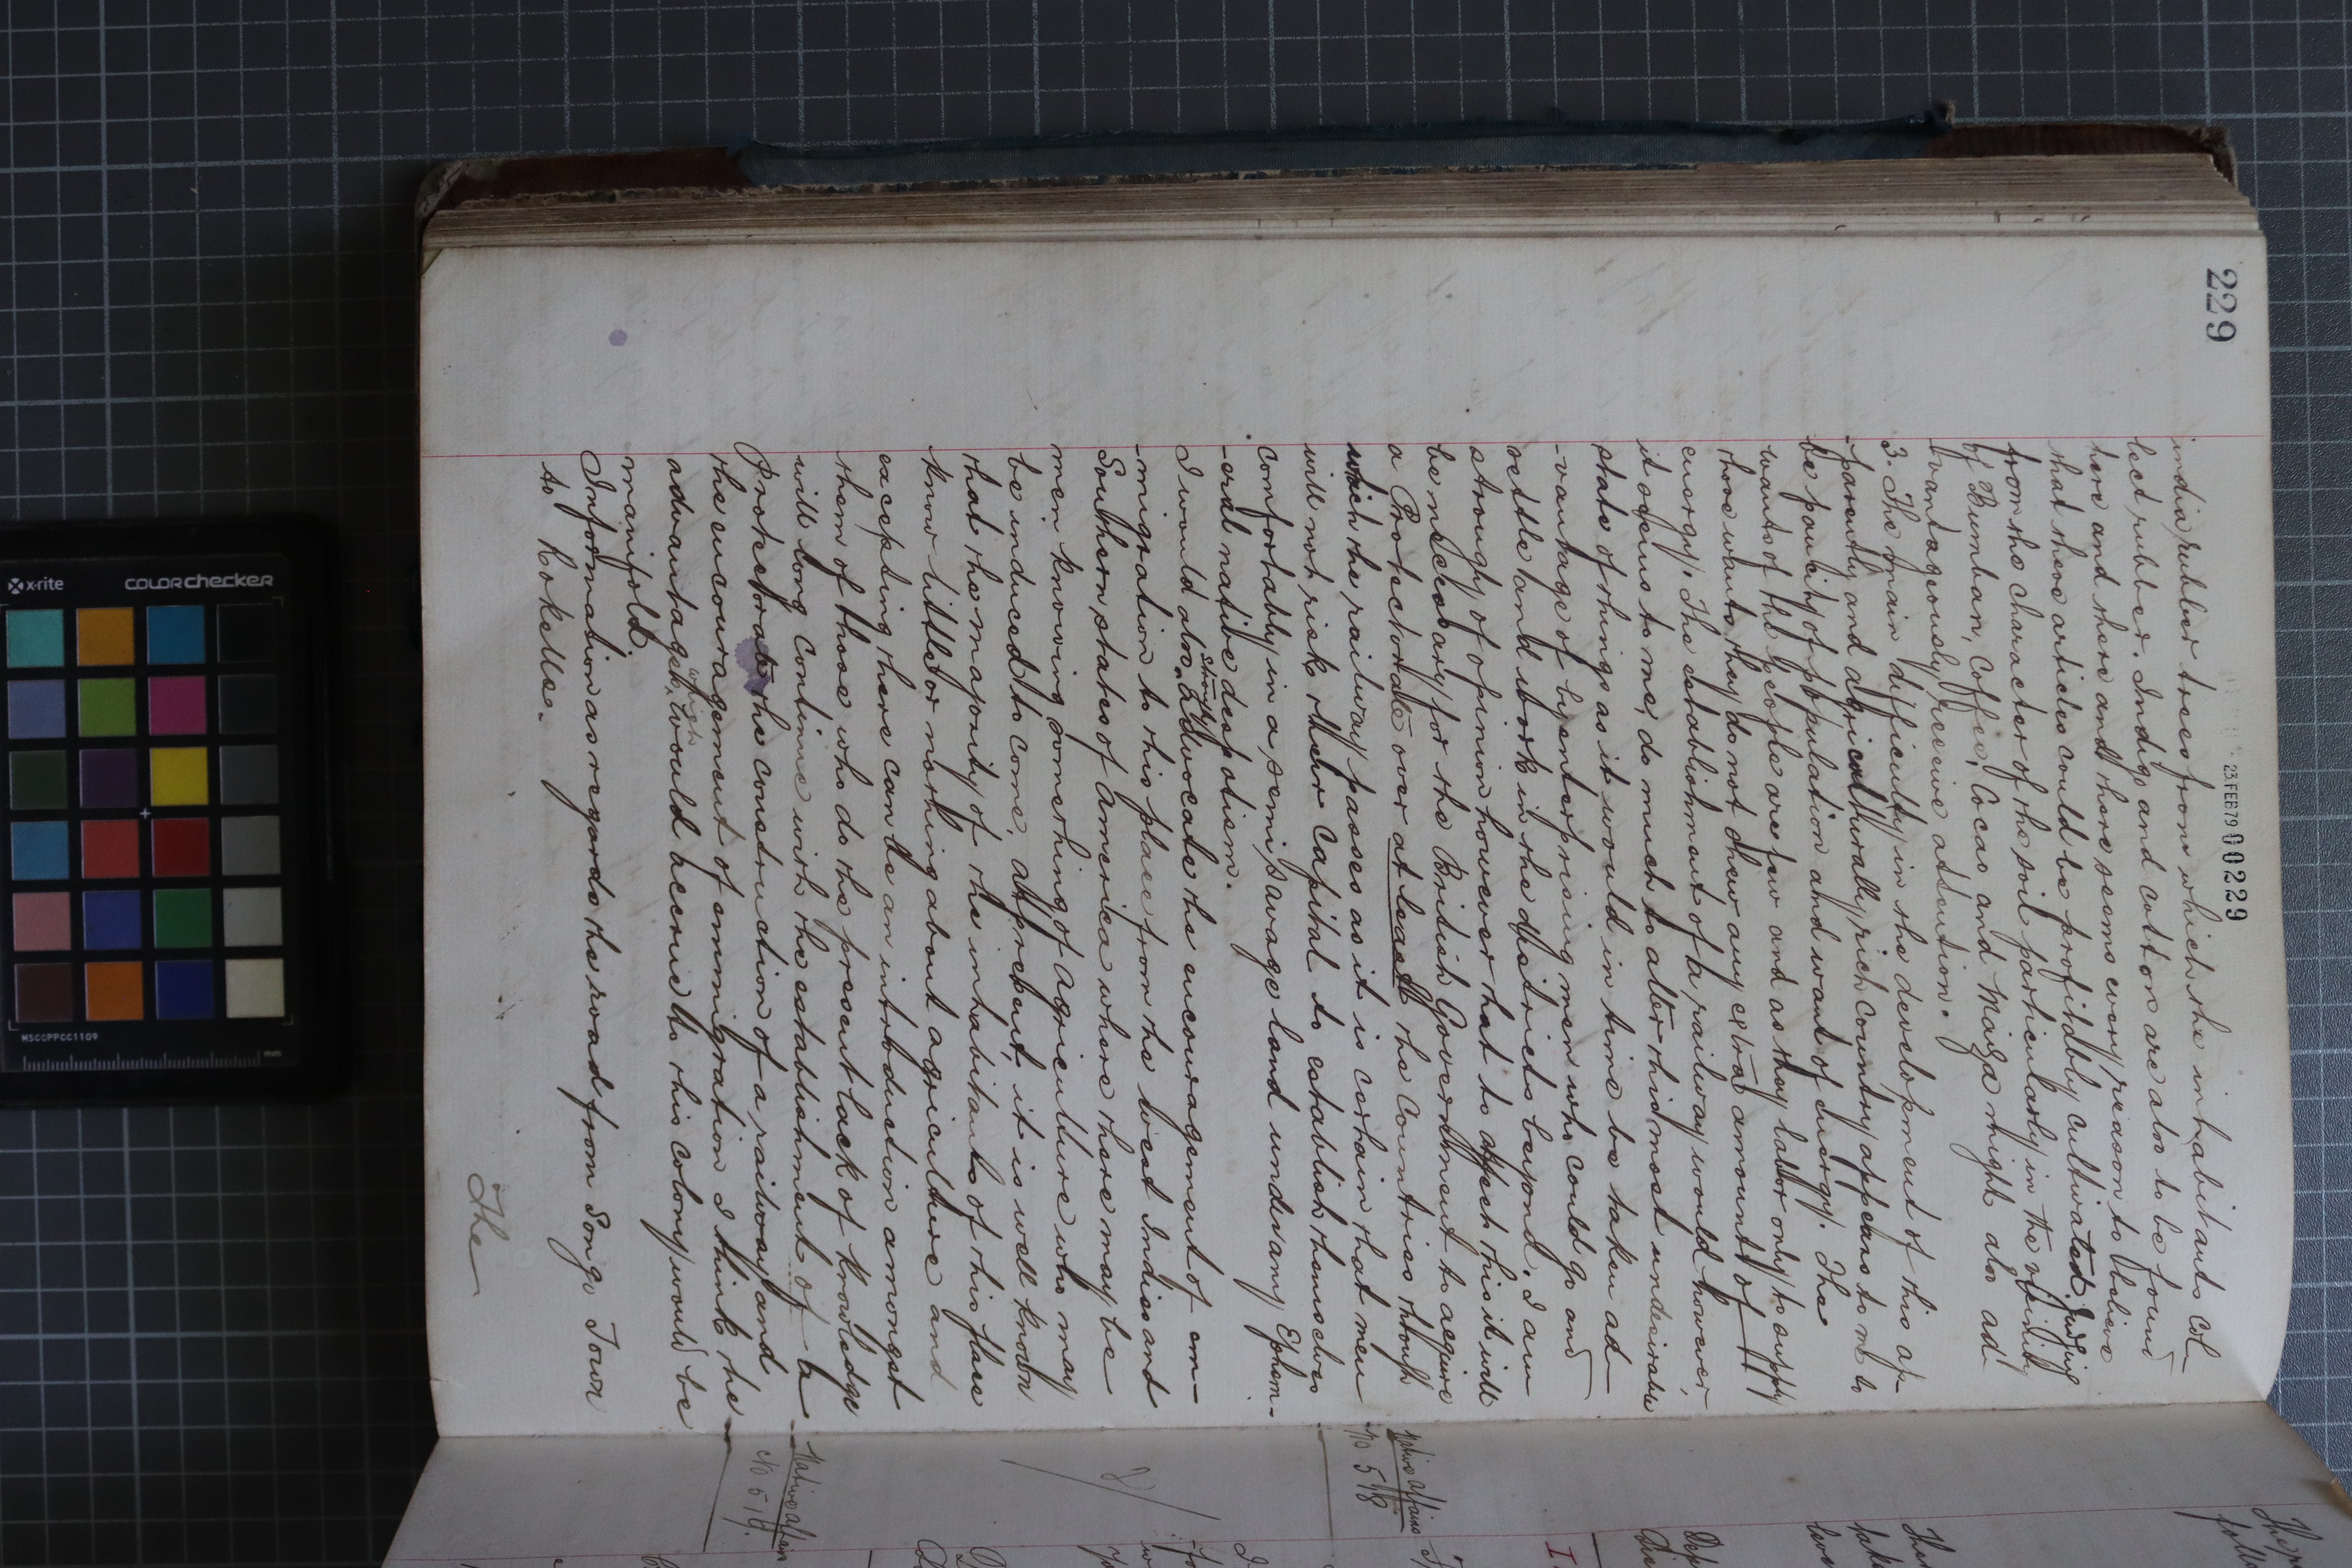 229
23.FEB79 00229
india rubber trees from which the inhabitants col-
lect rubber. Indigo and cotton are also to be found
here and there and there seems every reason to believe
that these articles could be profitably cultivated. Judging
from the character of the soil particularly in the vicinity
of Bumban, Coffee, Cocao and Maize might also ad-
-vantageously receive attention.
3. The main difficulty in the development of this ap-
-parently and agriculturally rich country appears to me to
be paucity of population and want of energy. The
wants of the people are few and as they labor only to supply
those wants they do not shew any extra amount of
energy. The establishment of a railway would however,
it seems to me, do much to alter this most undesirable
state of things as it would in time be taken ad-
-vantage of by enterprising men who could go and
settle and work in the districts beyond. I am
strongly of opinion however that to effect this it will
be necessary for the British Government to acquire
a Protectorate over at least the countries through
which the railway passes as it is certain that men
will not risk their capital to establish themselves
comfortably in a semi savage land under any Ephem-
-eral native despotism.
I would also strongly advocate the encouragement of em-
-migration to this place from the West Indies and
Southern states of America where there may be
men knowing something of agriculture who may
be induced to come. At present, it is well known
that the majority of the inhabitants of this place
know little or nothing about agriculture and
excepting there can be an introduction amongst
them of those who do the present lack of knowledge
will long continue with the establishment of a
Protectorate the construction of a railway and
the encouragement of emmigration I think the
advantages which would accrue to this colony would be
manifold.
Information as regards the road from Songo Town
to Rokelle.
The
Native Affairs
No 518
Native Affairs
No 519.